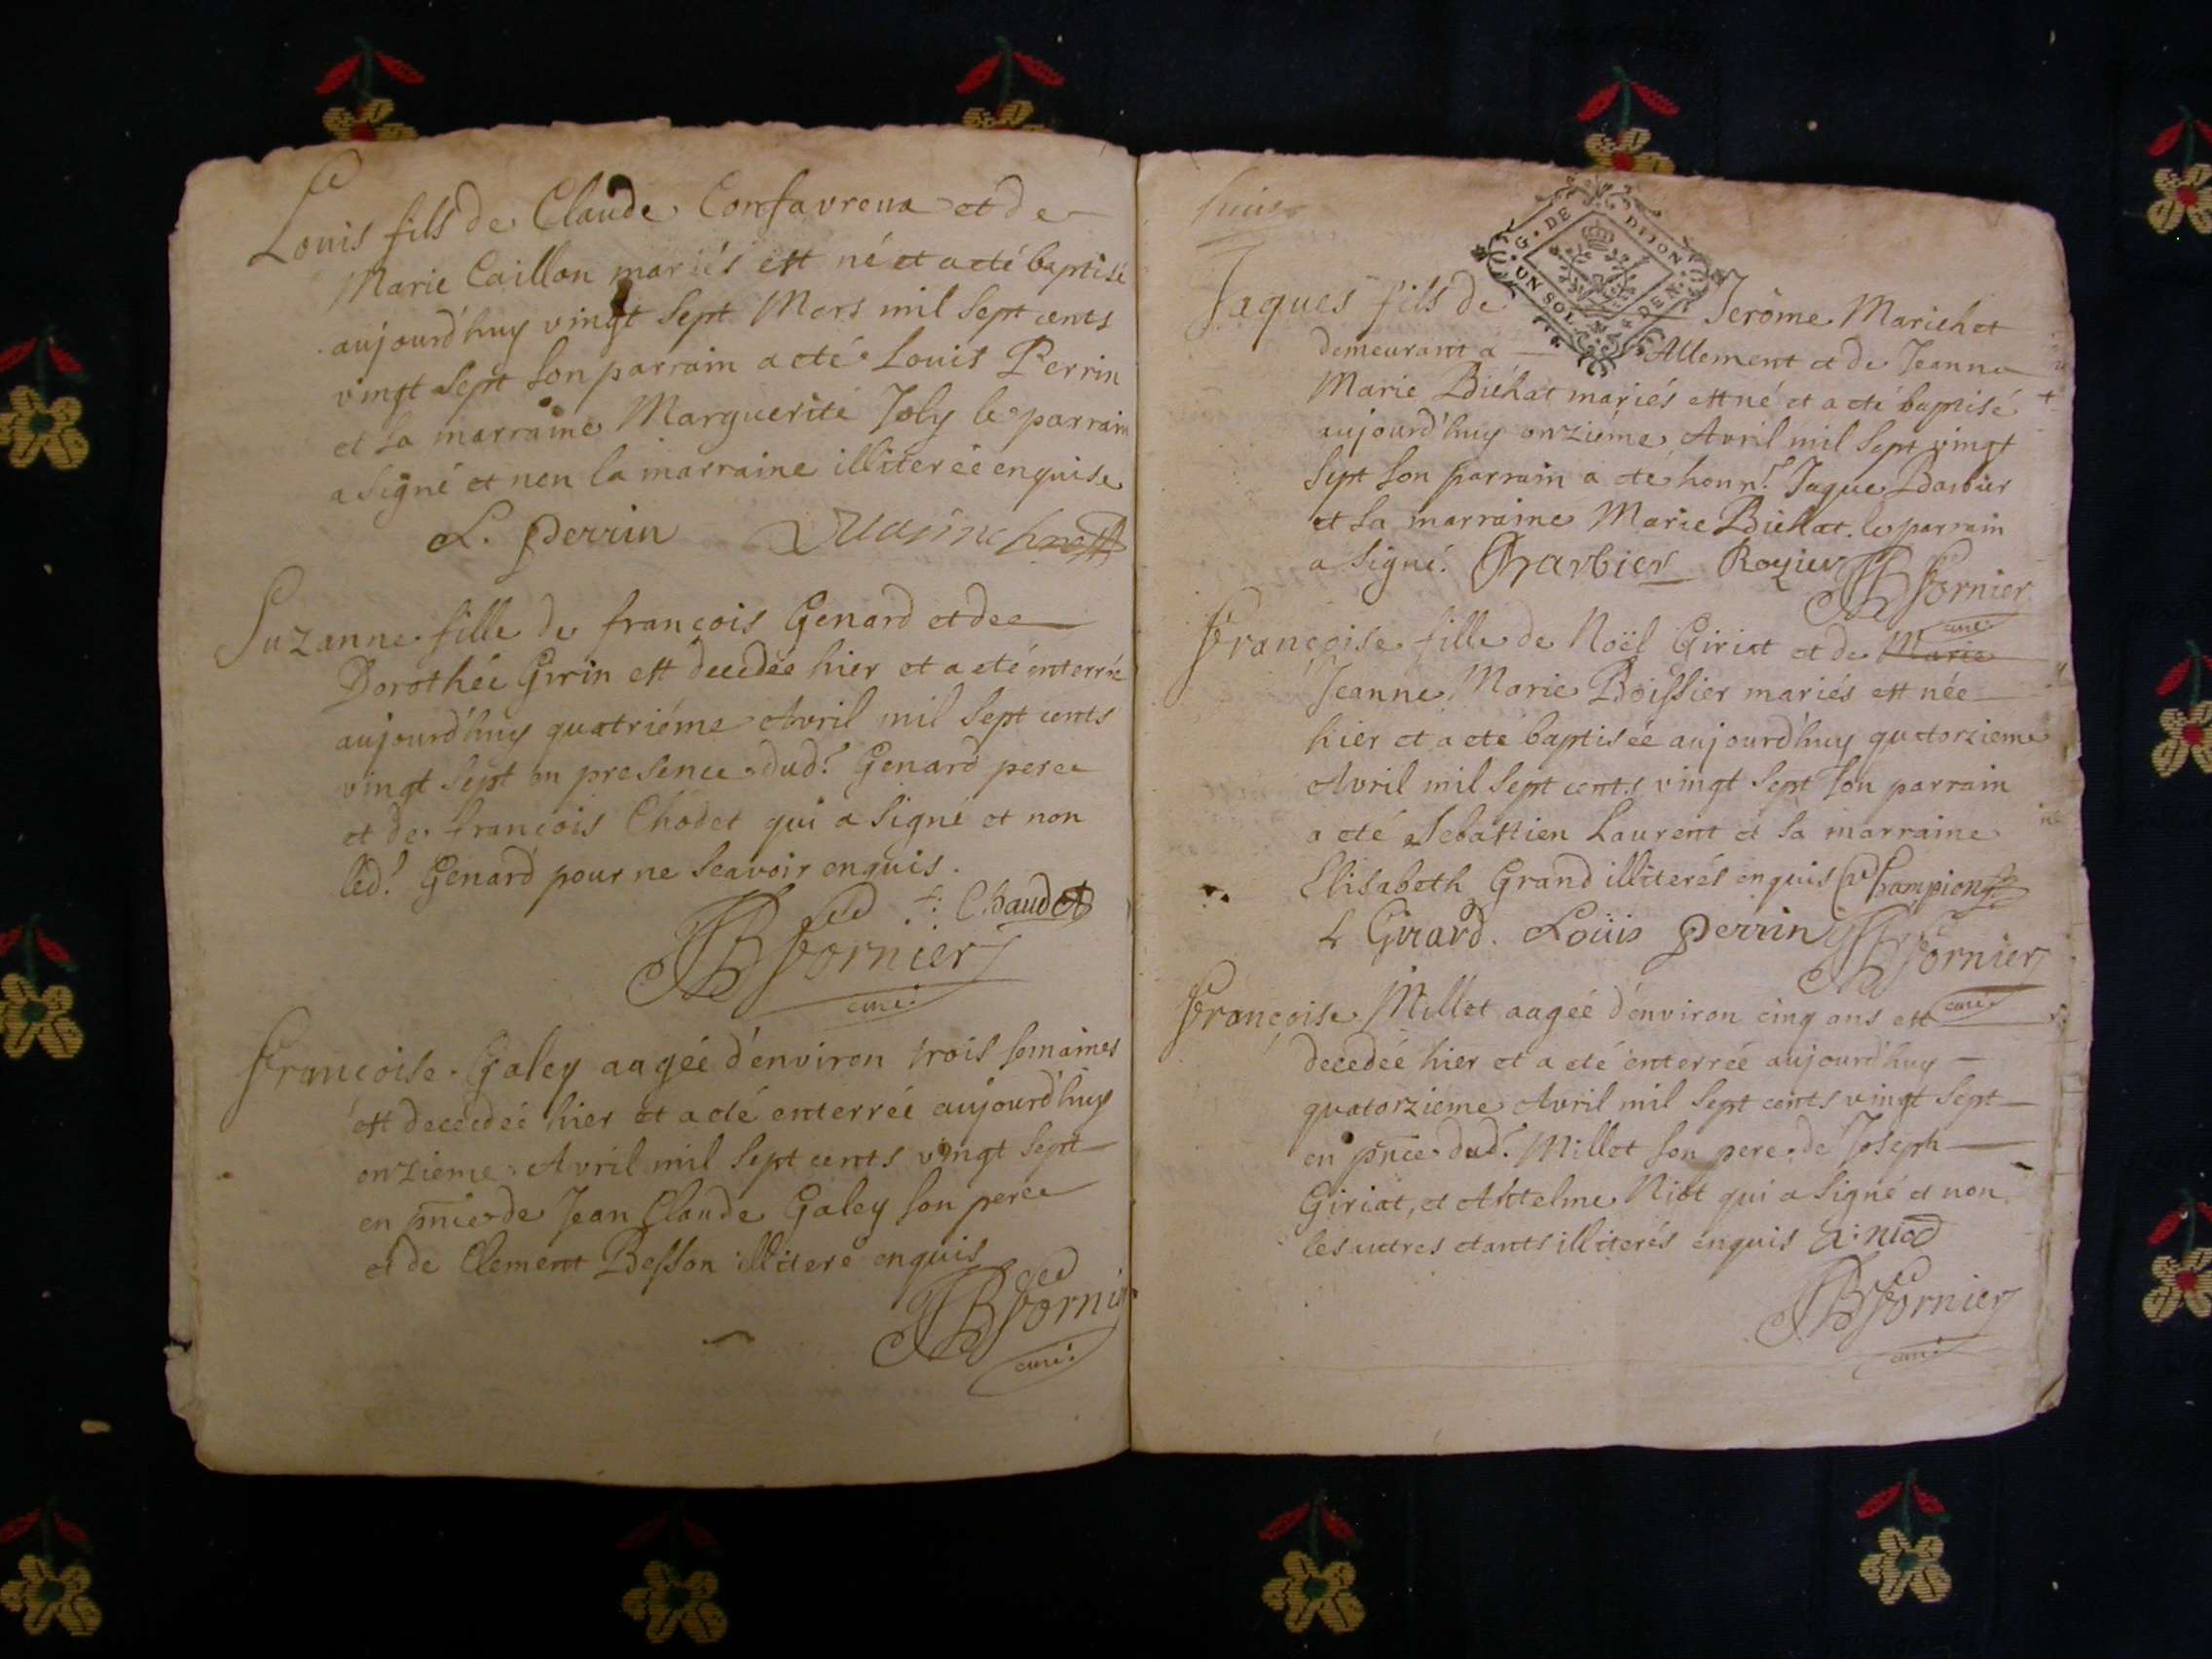 Louis fils de Claude Confavreux et de
Marie Caillon mariés est né et a eté baptisé
aujourd'huy vingt sept Mars mil sept cents
vingt sept son parrain a eté Louis Perrin
et sa marraine Marguerite Joly le parrain
a signé et non la marraine illiterée enquise
L. perrin
Suzanne fille de françois Genard et de
Dorothée Girin est decedée hier et a eté enterrée
aujourd'huy quatriéme Avril mil sept cents
vingt sept en presence dud.t Genard pere
et de françois Chodet qui a signé et non
led.t Genard pour ne scavoir enquis.
f: Chaudet
JB fornier
curé
françoise Galey aagée d'environ trois semaines
est decedée hier et a eté enterrée aujourd'huy
onzieme Avril mil sept cents vingt sept
en pnce de Jean Claude Galey son pere
et de Clement Besson illiteré enquis
JB forni
curé
huit
G. DE DIJON
UN SOL DEN.
Jaques fils de Jerôme Marichet
demeurant a Allement et de Jeanne
Marie Bichat mariés est né et a eté baptisé
aujourd'huy onziéme Avril mil sept vingt
sept son parrain a eté honn.t Jaque Barbier
et sa marraine Marie Bichat. le parrain
a signé. Barbier Royer JB fornier
curé
françoise fille de Noël Giriat et de Marie
Jeanne Marie Boissier mariés est née
hier et a eté baptisée aujourd'huy quatorzieme
Avril mil sept cents vingt sept son parrain
a eté Sebastien Laurent et sa marraine
Elisabeth Grand illiterés enquis Champion
L Girard. Loüis perrin JB fornier
curé
françoise Millet aagée d'environ cinq ans est
decedée hier et a eté enterrée aujourd'huy
quatorzieme Avril mil sept cents vingt sept
en pnce dud.t Millet son pere de Joseph
Giriat, et Antelme Niot qui a signé et non
les autres etants illiterés enquis a: niod
JB fornier
curé